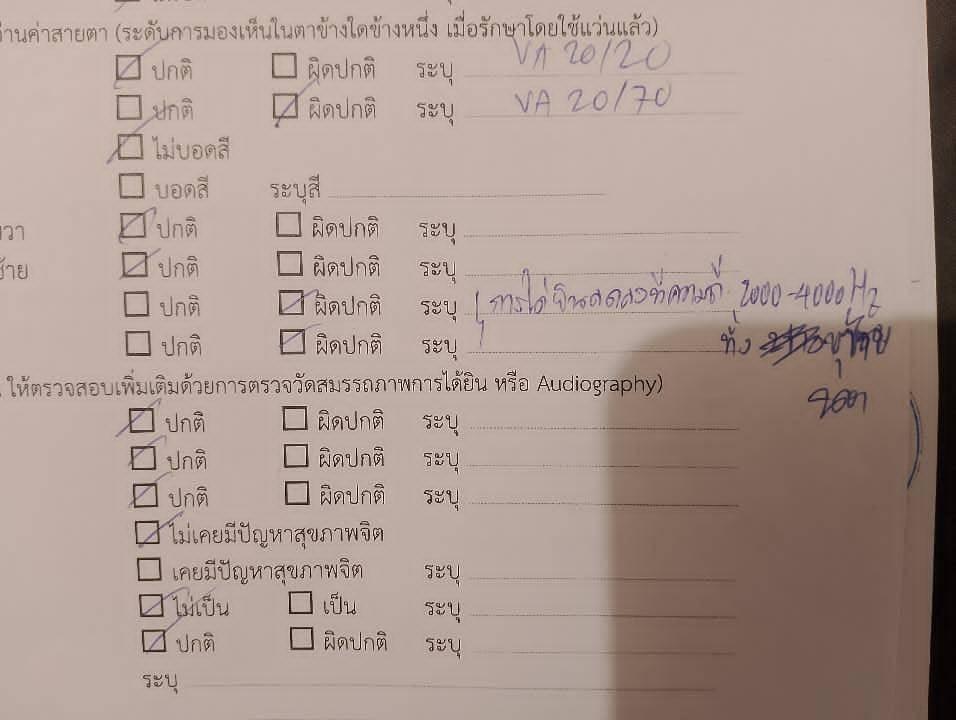 ้านค่าสายตา (ระดับการมองเห็นในตาข้างใดข้างหนึ่ง เมื่อรักษาโดยใช้แว่นแล้ว)
ปกติ ผิดปกติ ระบุ VA 20/20
ปกติ ผิดปกติ ระบุ VA 20/70
ไม่บอดสี
บอดสี ระบุสี
วา ปกติ ผิดปกติ ระบุ
ซ้าย ปกติ ผิดปกติ ระบุ
ปกติ ผิดปกติ ระบุ การได้ยินลดลงที่ความถี่ 2000-4000 Hz
ปกติ ผิดปกติ ระบุ ทั้ง
ให้ตรวจสอบเพิ่มเติมด้วยการตรวจวัดสมรรถภาพการได้ยิน หรือ Audiography)
ปกติ ผิดปกติ ระบุ
ปกติ ผิดปกติ ระบุ
ปกติ ผิดปกติ ระบุ
ไม่เคยมีปัญหาสุขภาพจิต
เคยมีปัญหาสุขภาพจิต ระบุ
ไม่เป็น เป็น ระบุ
ปกติ ผิดปกติ ระบุ
ระบุ